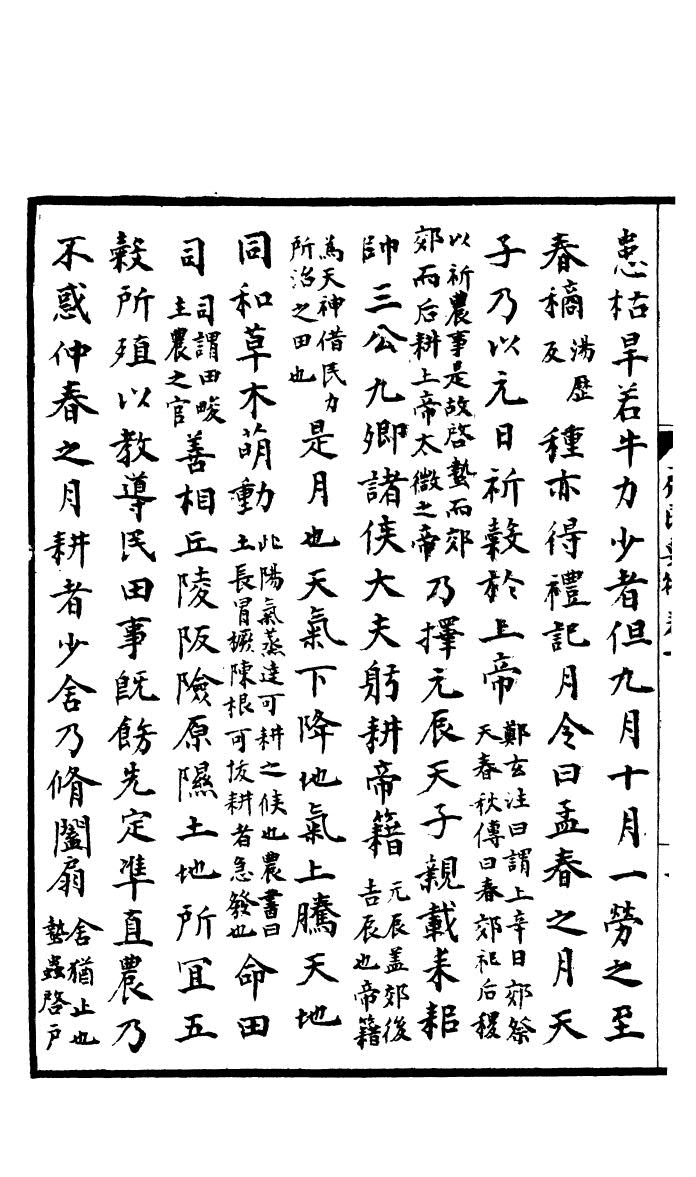 患枯旱若牛力少者但九月十月一勞之至
春穡湯歷反種亦得禮記月令曰孟春之月天
子乃以元日祈穀於上帝鄭玄注曰謂上辛日郊祭天春秋傳曰春郊祀后稷
以祈農事是故啓蟄而郊郊而后耕上帝太微之帝乃擇元辰天子親載耒耜
帥三公九卿諸侯大夫躬耕帝籍元辰蓋郊後吉辰也帝籍
為天神借民力所治之田也是月也天氣下降地氣上騰天地
同和草木萌動此陽氣蒸達可耕之候也農書曰土長冒橛陳根可拔耕者急發也命田
司司謂田畯主農之官善相丘陵阪險原隰土地所宜五
穀所殖以教導民田事既飭先定準直農乃
不惑仲春之月耕者少舍乃脩闔扇舍猶止也蟄蟲啓戶